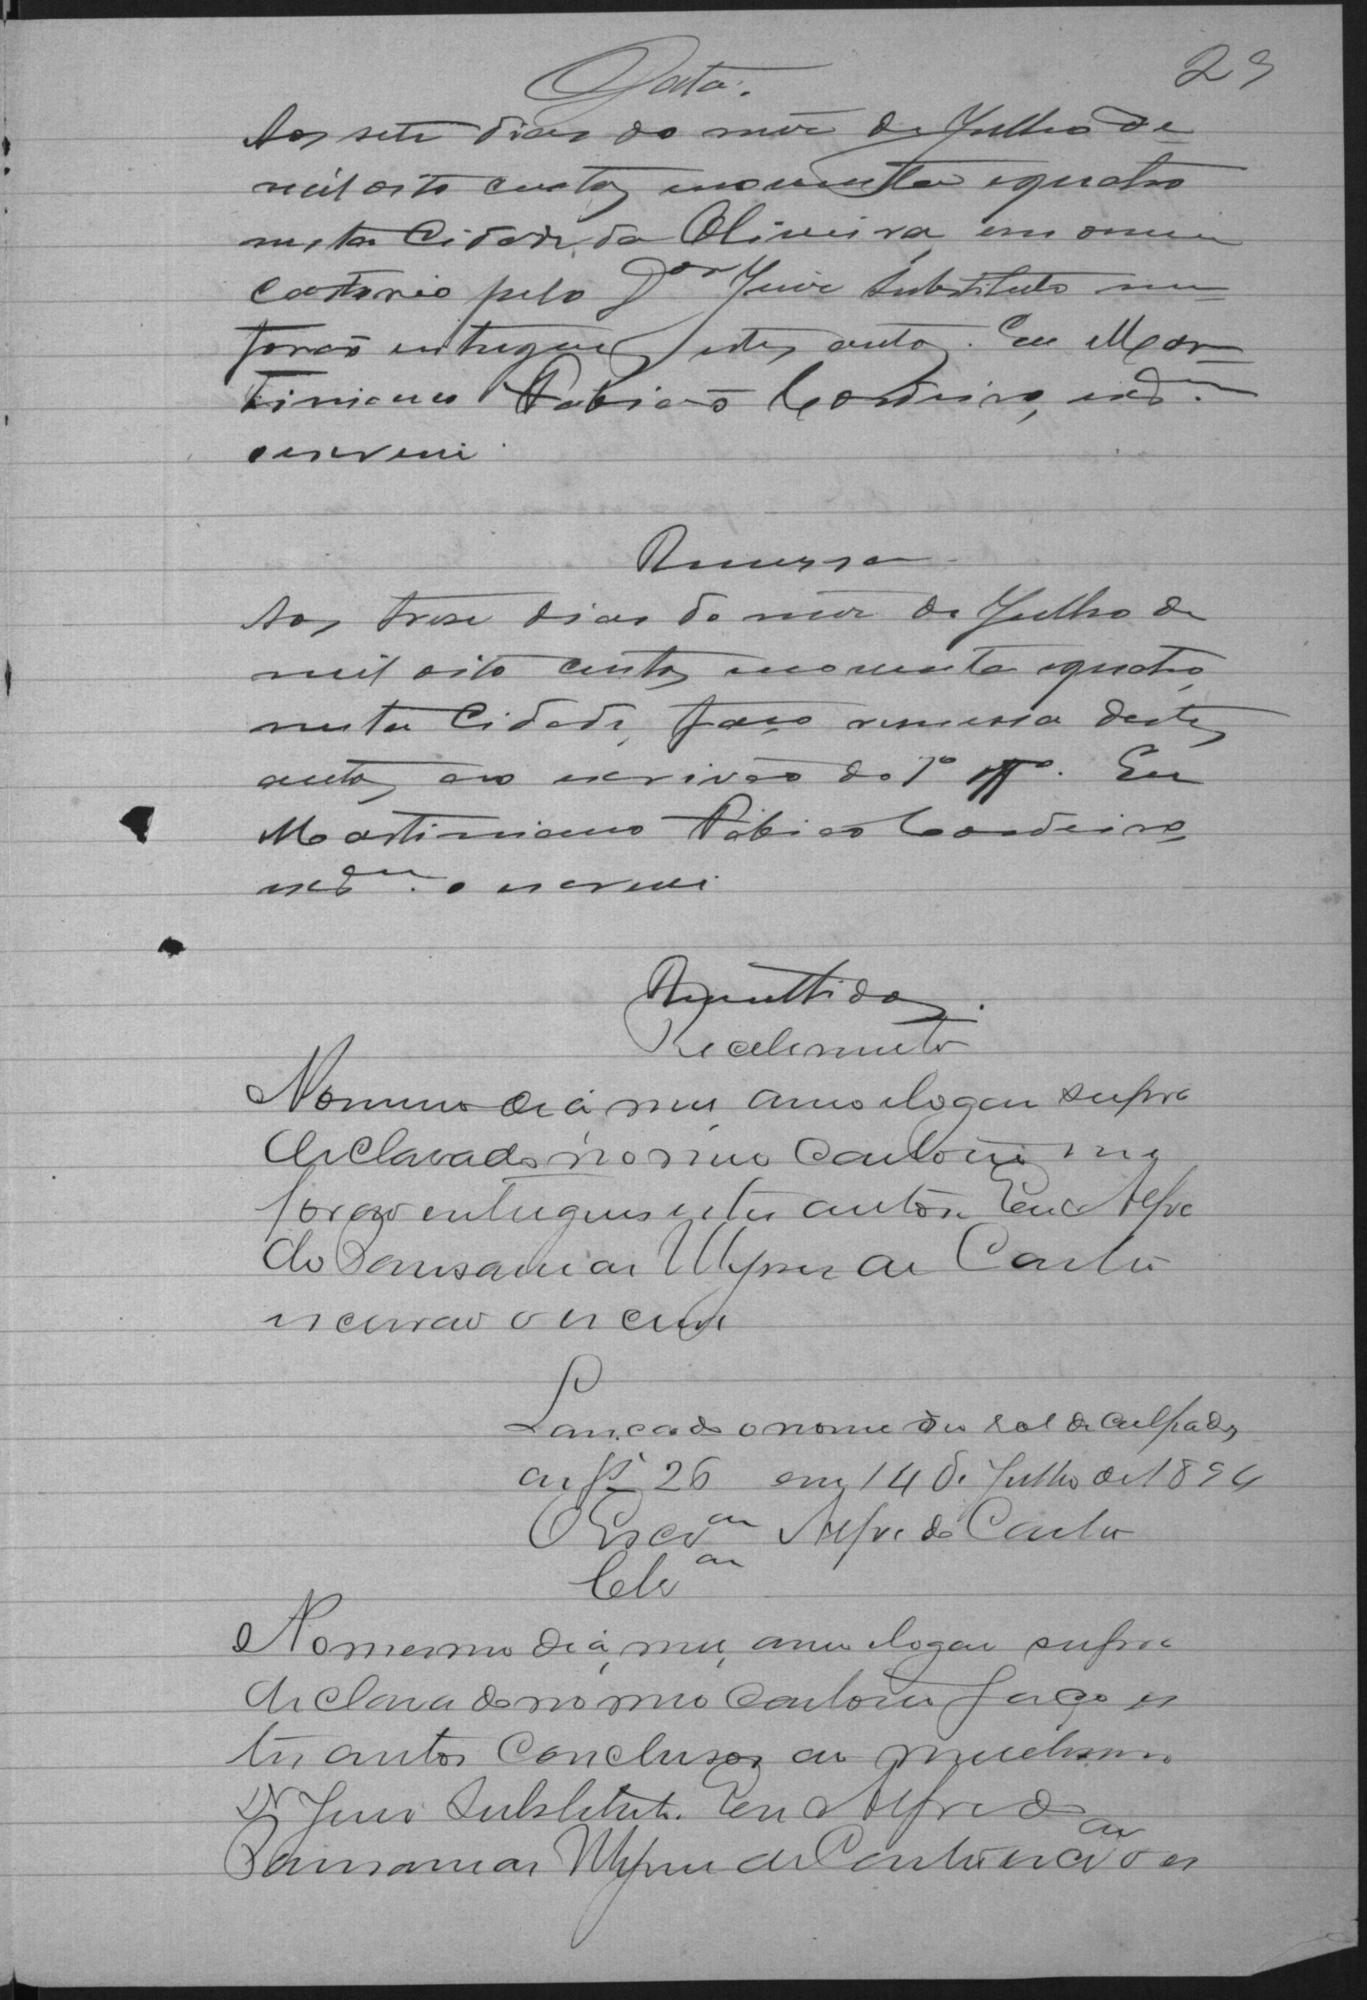 29
Data.
Aos sete dias do mez de Julho de
mil oito centos enoventa equatro
nesta Cidade da Oliveira, em omeu
cartorio pelo Dor Juiz Substituto me
forão entregues estes autos. Eu Mar-
timiano Fabião Cordeiro, escam.
o escrevi
Remessa
Aos trese dias do mez de Julho de
mil oito centos enoventa equatro,
nesta Cidade, faço remessa destes
autos ao escrivão do 1º offº. Eu
Martimiano Fabião Cordeiro,
escam. o escrevi
Remettidos.
Recebimento
No mesmo dia, mes, anno elogar supra
declarado no meo cartorio me
forão entregues estes autos. Eu Alfre
do de Castro
escrivão o escrevi
Lançado o nome no rol de culpados
a fs 26 em 14 de Julho de 1894
O Escvam Alfredo Castro
Clsam
No mesmo dia, mes, anno elogar supra
declarado no meo cartorio faço es
tes autos conclusos ao
Dr Juis Substituto. Eu Alfredo
de Castro escvao o es